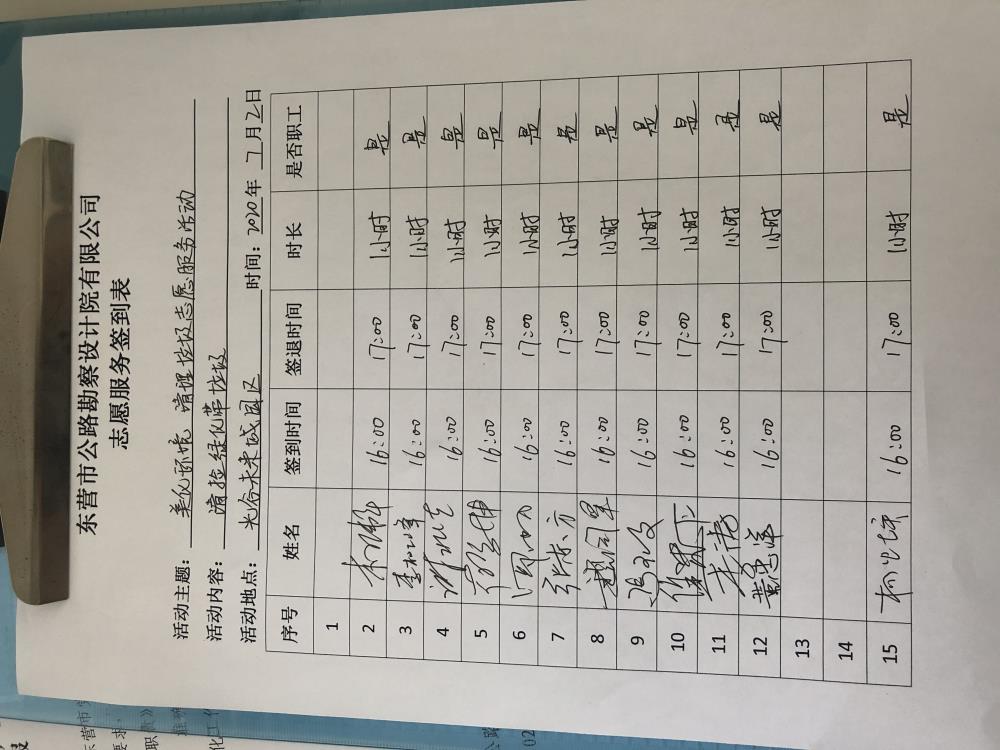 东营市公路勘察设计院有限公司
志愿服务签到表
活动主题：美化环境，清理垃圾志愿服务活动
活动内容：清捡绿化带垃圾
活动地点：光谷未来城园区 时间：2020年7月2日
序号 姓名 签到时间 签退时间 时长 是否职工
1
2 16:00 17:00 1小时 是
3 16:00 17:00 1小时 是
4 16:00 17:00 1小时 是
5 16:00 17:00 1小时 是
6 16:00 17:00 1小时 是
7 16:00 17:00 1小时 是
8 16:00 17:00 1小时 是
9 16:00 17:00 1小时 是
10 16:00 17:00 1小时 是
11 16:00 17:00 1小时 是
12 16:00 17:00 1小时 是
13
14
15 16:00 17:00 1小时 是